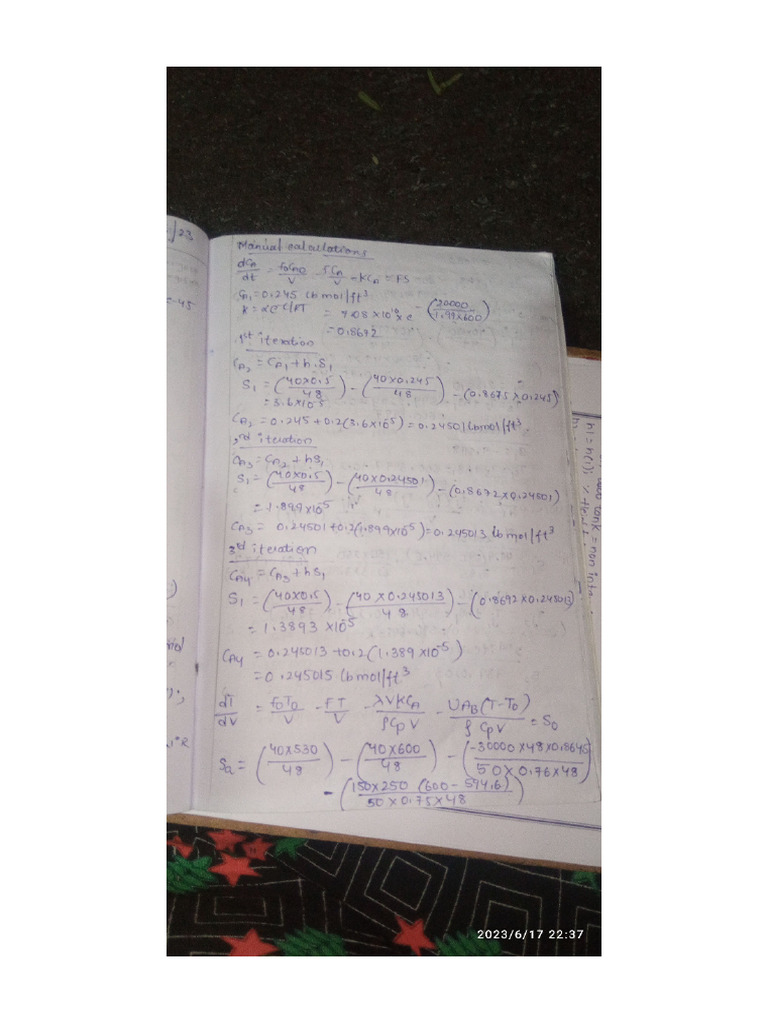 Manual calculations
dCA/dt = f0CA0/V - fCA/V - KCA = FS
CA1 = 0.245 lb mol/ft³
K = αe^-E/RT = 7.08 × 10^10 × e^-(30000/1.99×600)
= 0.8672
1st iteration
CA2 = CA1 + h.S1
S1 = (40×0.5/48) - (40×0.245/48) - (0.8675×0.245)
= 3.6×10^-5
CA2 = 0.245 + 0.2(3.6×10^-5) = 0.24501 lbmol/ft³
2nd iteration
CA3 = CA2 + hS1
S1 = (40×0.5/48) - (40×0.24501/48) - (0.8672×0.24501)
= 1.899×10^-5
CA3 = 0.24501 + 0.2(1.899×10^-5) = 0.245013 lb mol/ft³
3rd iteration
CA4 = CA3 + hS1
S1 = (40×0.5/48) - (40×0.245013/48) - (0.8692×0.245013)
= 1.3893 ×10^-5
CA4 = 0.245013 + 0.2(1.389×10^-5)
= 0.245015 lbmol/ft³
dT/dV = f0T0/V - FT/V - λVKCA/ρCpV - UAB(T-T0)/ρCpV = S0
Sa = (40×530/48) - (40×600/48) - (-30000×48×0.8645/50×0.76×48)
- (150×250 (600-594.6)/50×0.75×48)
/23
=-45
h1 = h(1);
tank = non inta
2023/6/17 22:37